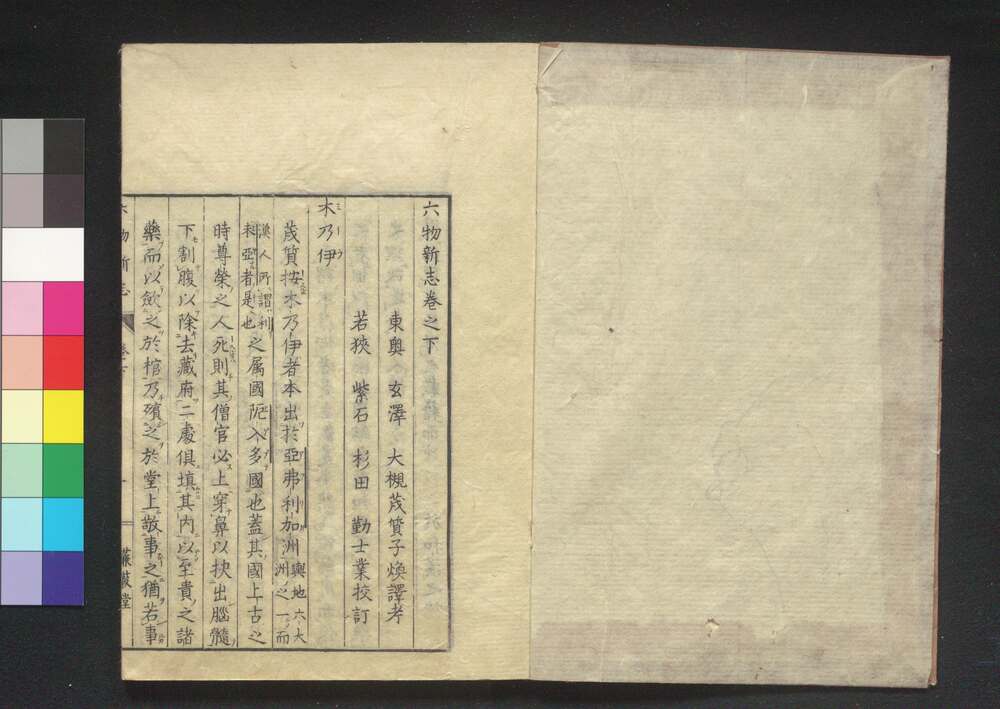 六物新志卷之下
東奥 玄澤 大槻茂質子煥譯考
若狹 紫石 杉田 勤士業校訂
木乃伊
茂質按木乃伊者本出於亞弗利加洲輿地六大洲之一而
漢人所謂利未亞者是也之属國阨入多國也蓋其國上古之
時尊榮之人死則其僧官必上穿鼻以抉出腦髓
下割腹以除去藏府二處俱填其内以至貴之諸
藥而以斂之於棺乃殯之於堂上敬事之猶若事
六物新志
蒹葭堂